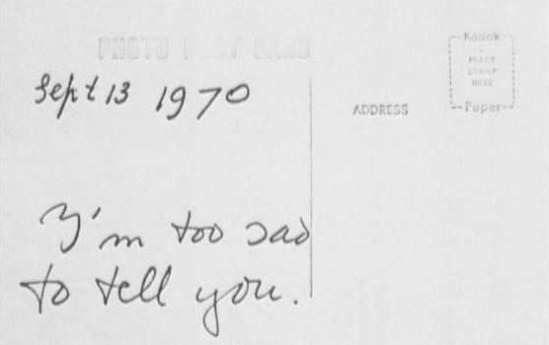 PHOTO POST CARD
Sept 13 1970
ADDRESS
Kodak
PLACE
STAMP
HERE
Paper
I'm too sad
to tell you.